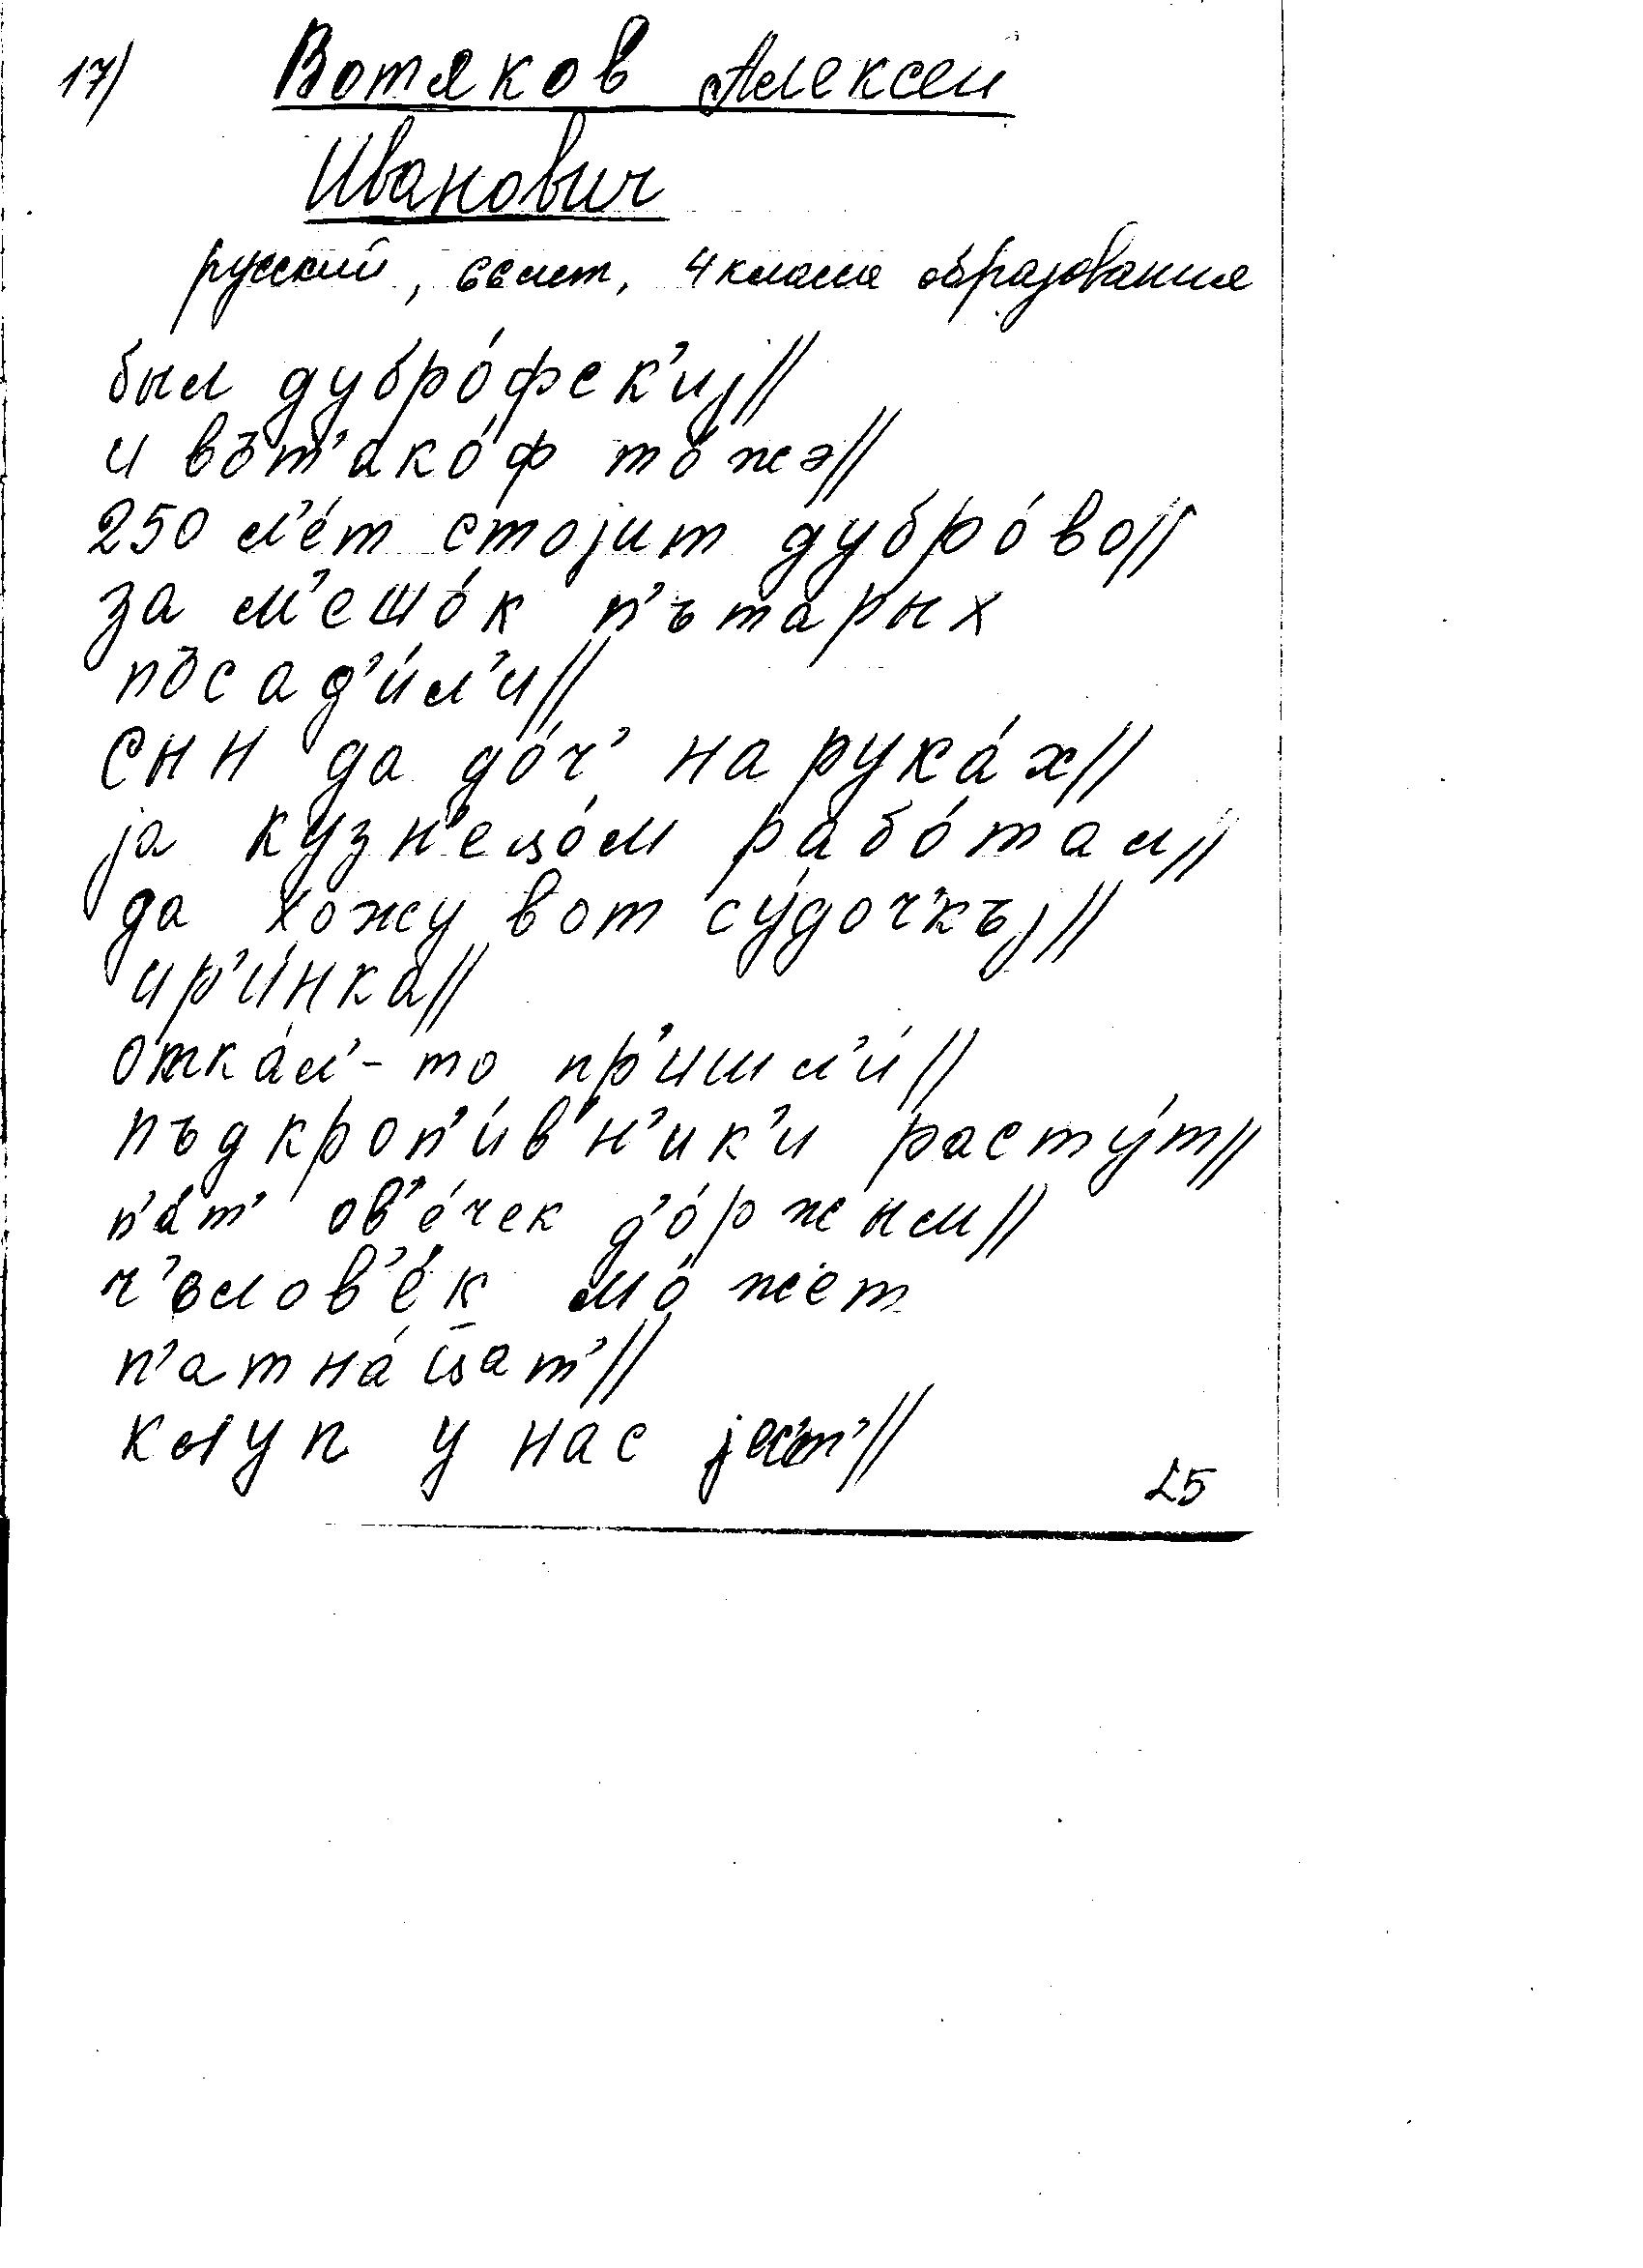 17) Вотяков Алексей
Иванович
русский, 66 лет, 4 класса образования
был дубро́фск'иj//
и вът'ако́ф то́жэ//
250 л'е́т стоjит дубро́во//
за м'ешо́к п'ътарых
пъсад'и́л'и//
сын да до́ч' на рука́х//
jа кузн'ецо́м рабо́тал//
да хожу вот су́доч'къj//
ир'и́нка//
отка́л'-то пр'ишл'и́//
пъдкроп'и́в'н'ик'и расту́т//
п'а́т' ов'е́чек д'о́ржым//
ч'ьлов'е́к мо́жет
п'атна́ц̄ат'//
клуп у нас jес'т'//
25